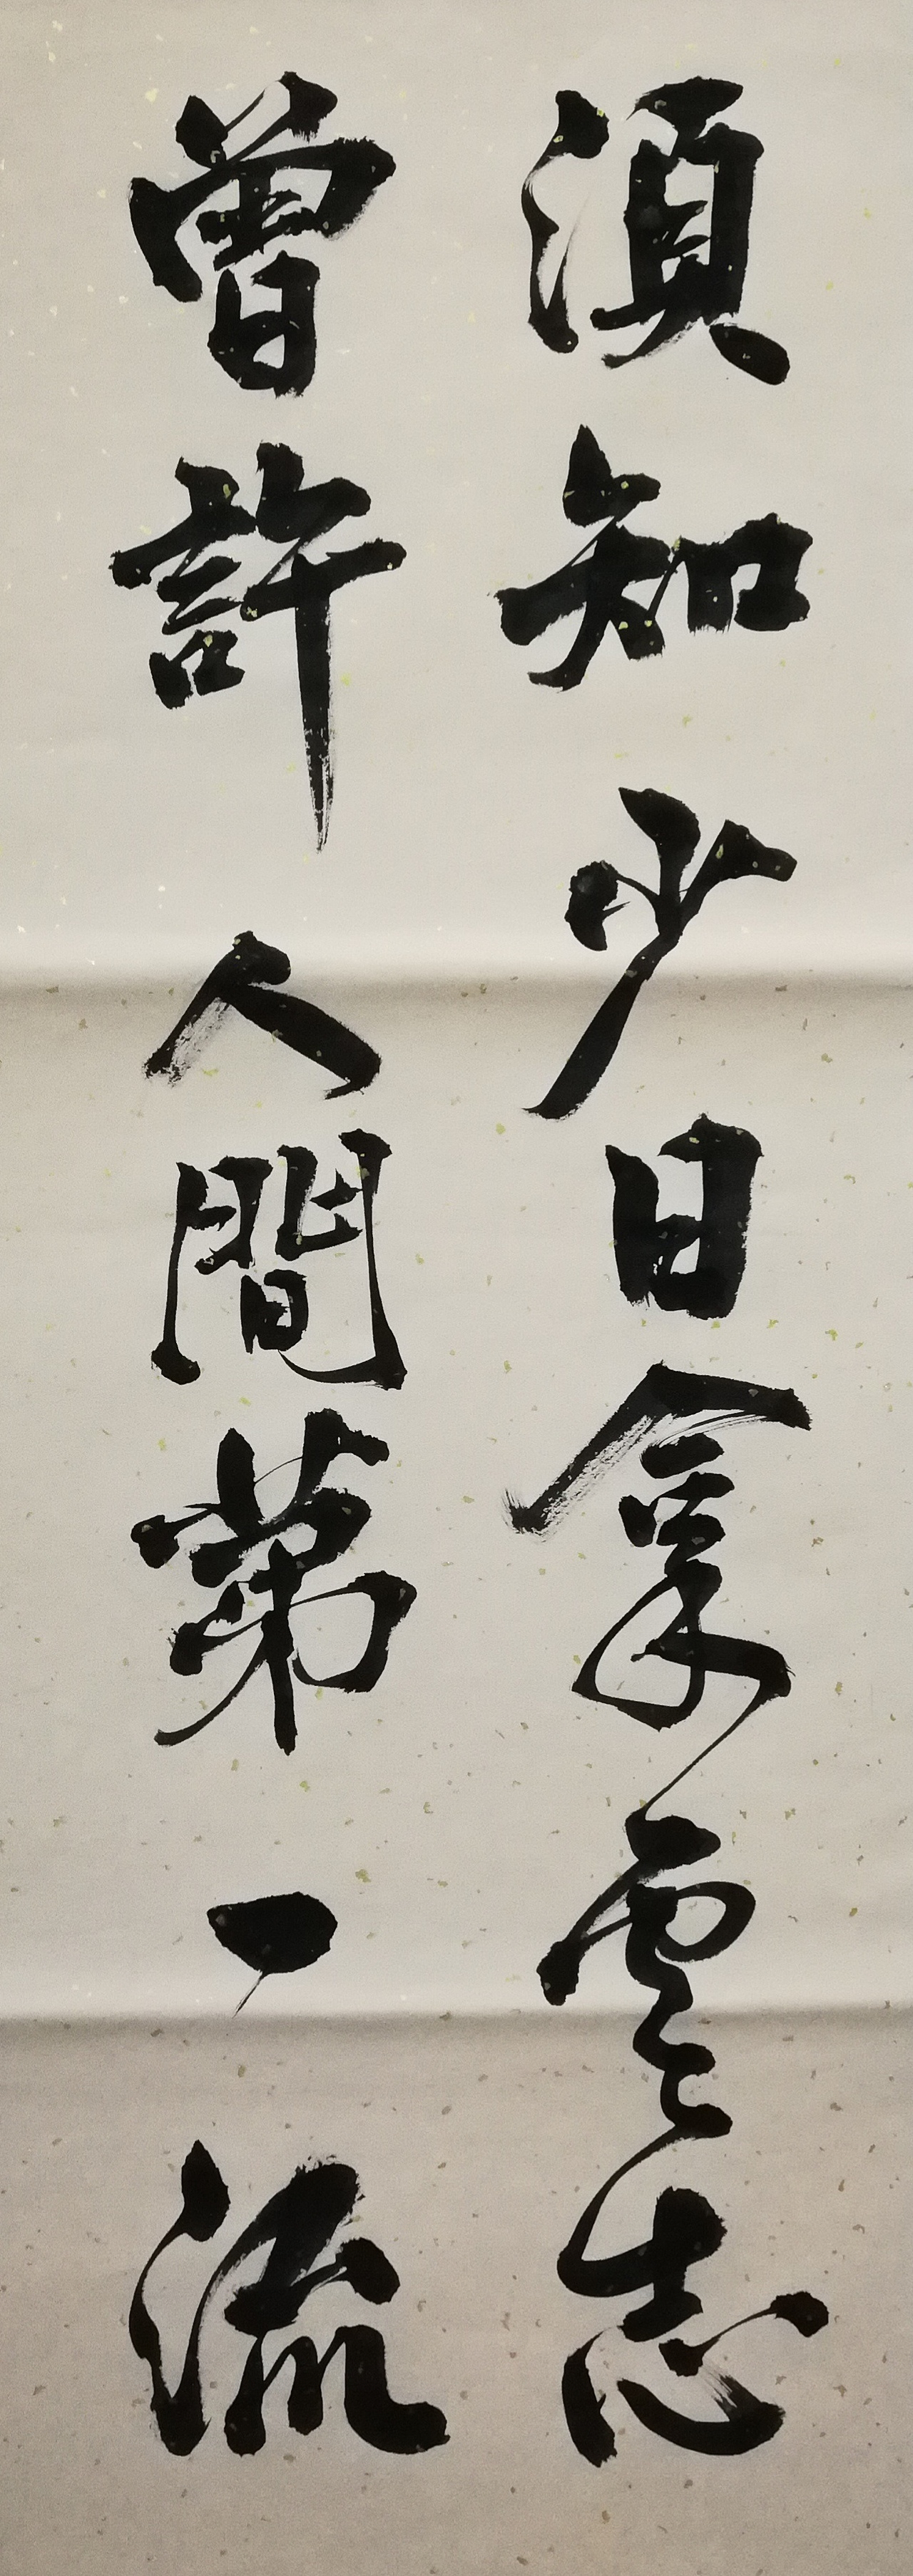 須知少日拿雲志
曾許人間第一流